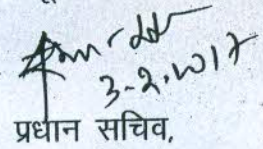 3-2-2017
प्रधान सचिव,